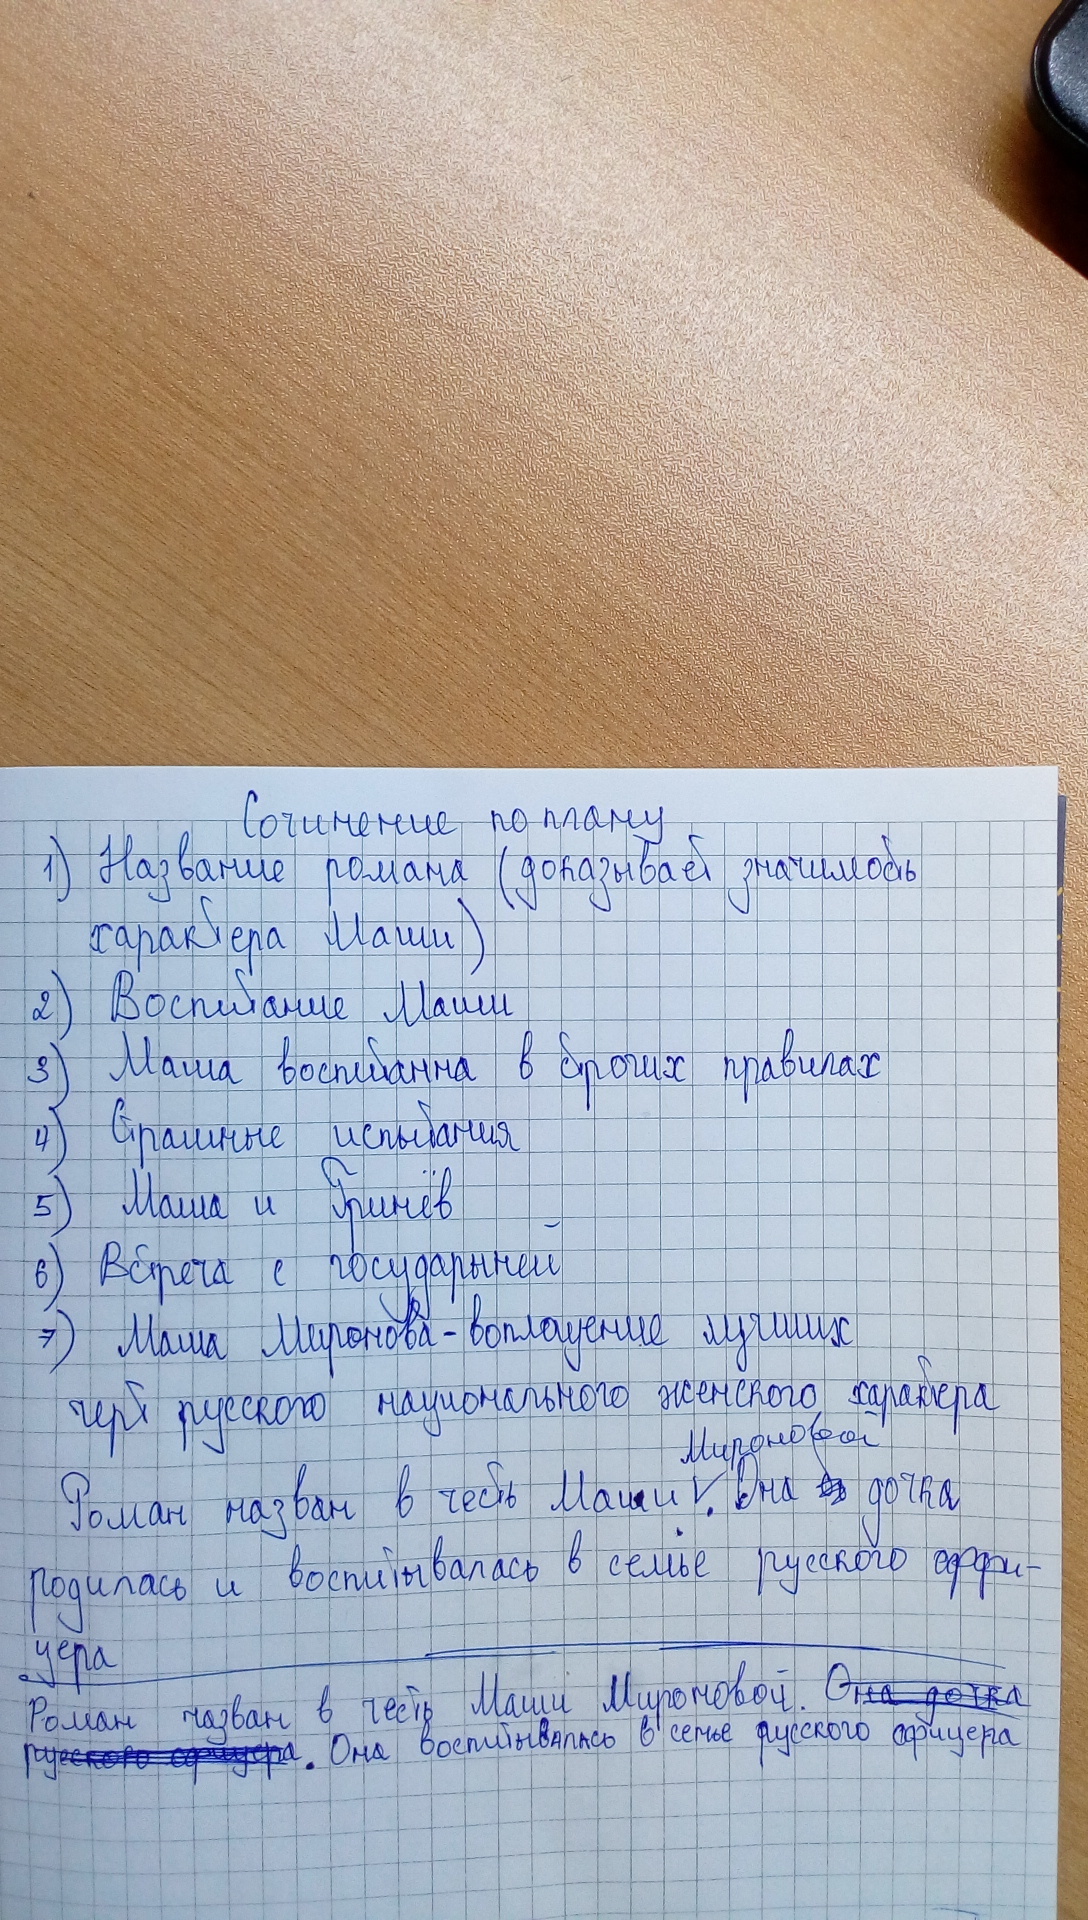 Сочинение по плану
1) Название романа (доказывает значимость
характера Маши)
2) Воспитание Маши
3) Маша воспитанна в строгих правилах
4) Страшные испытания
5) Маша и Гринёв
6) Встреча с государыней
7) Маша Миронова - воплощение лучших
черт русского национального женского характера
Мироновой
Роман назван в честь Маши V. Она дочка
родилась и воспитывалась в семье русского оффи-
цера
Роман назван в честь Маши Мироновой. Она дочка
русского офицера. Она воспитывалась в семье русского офицера